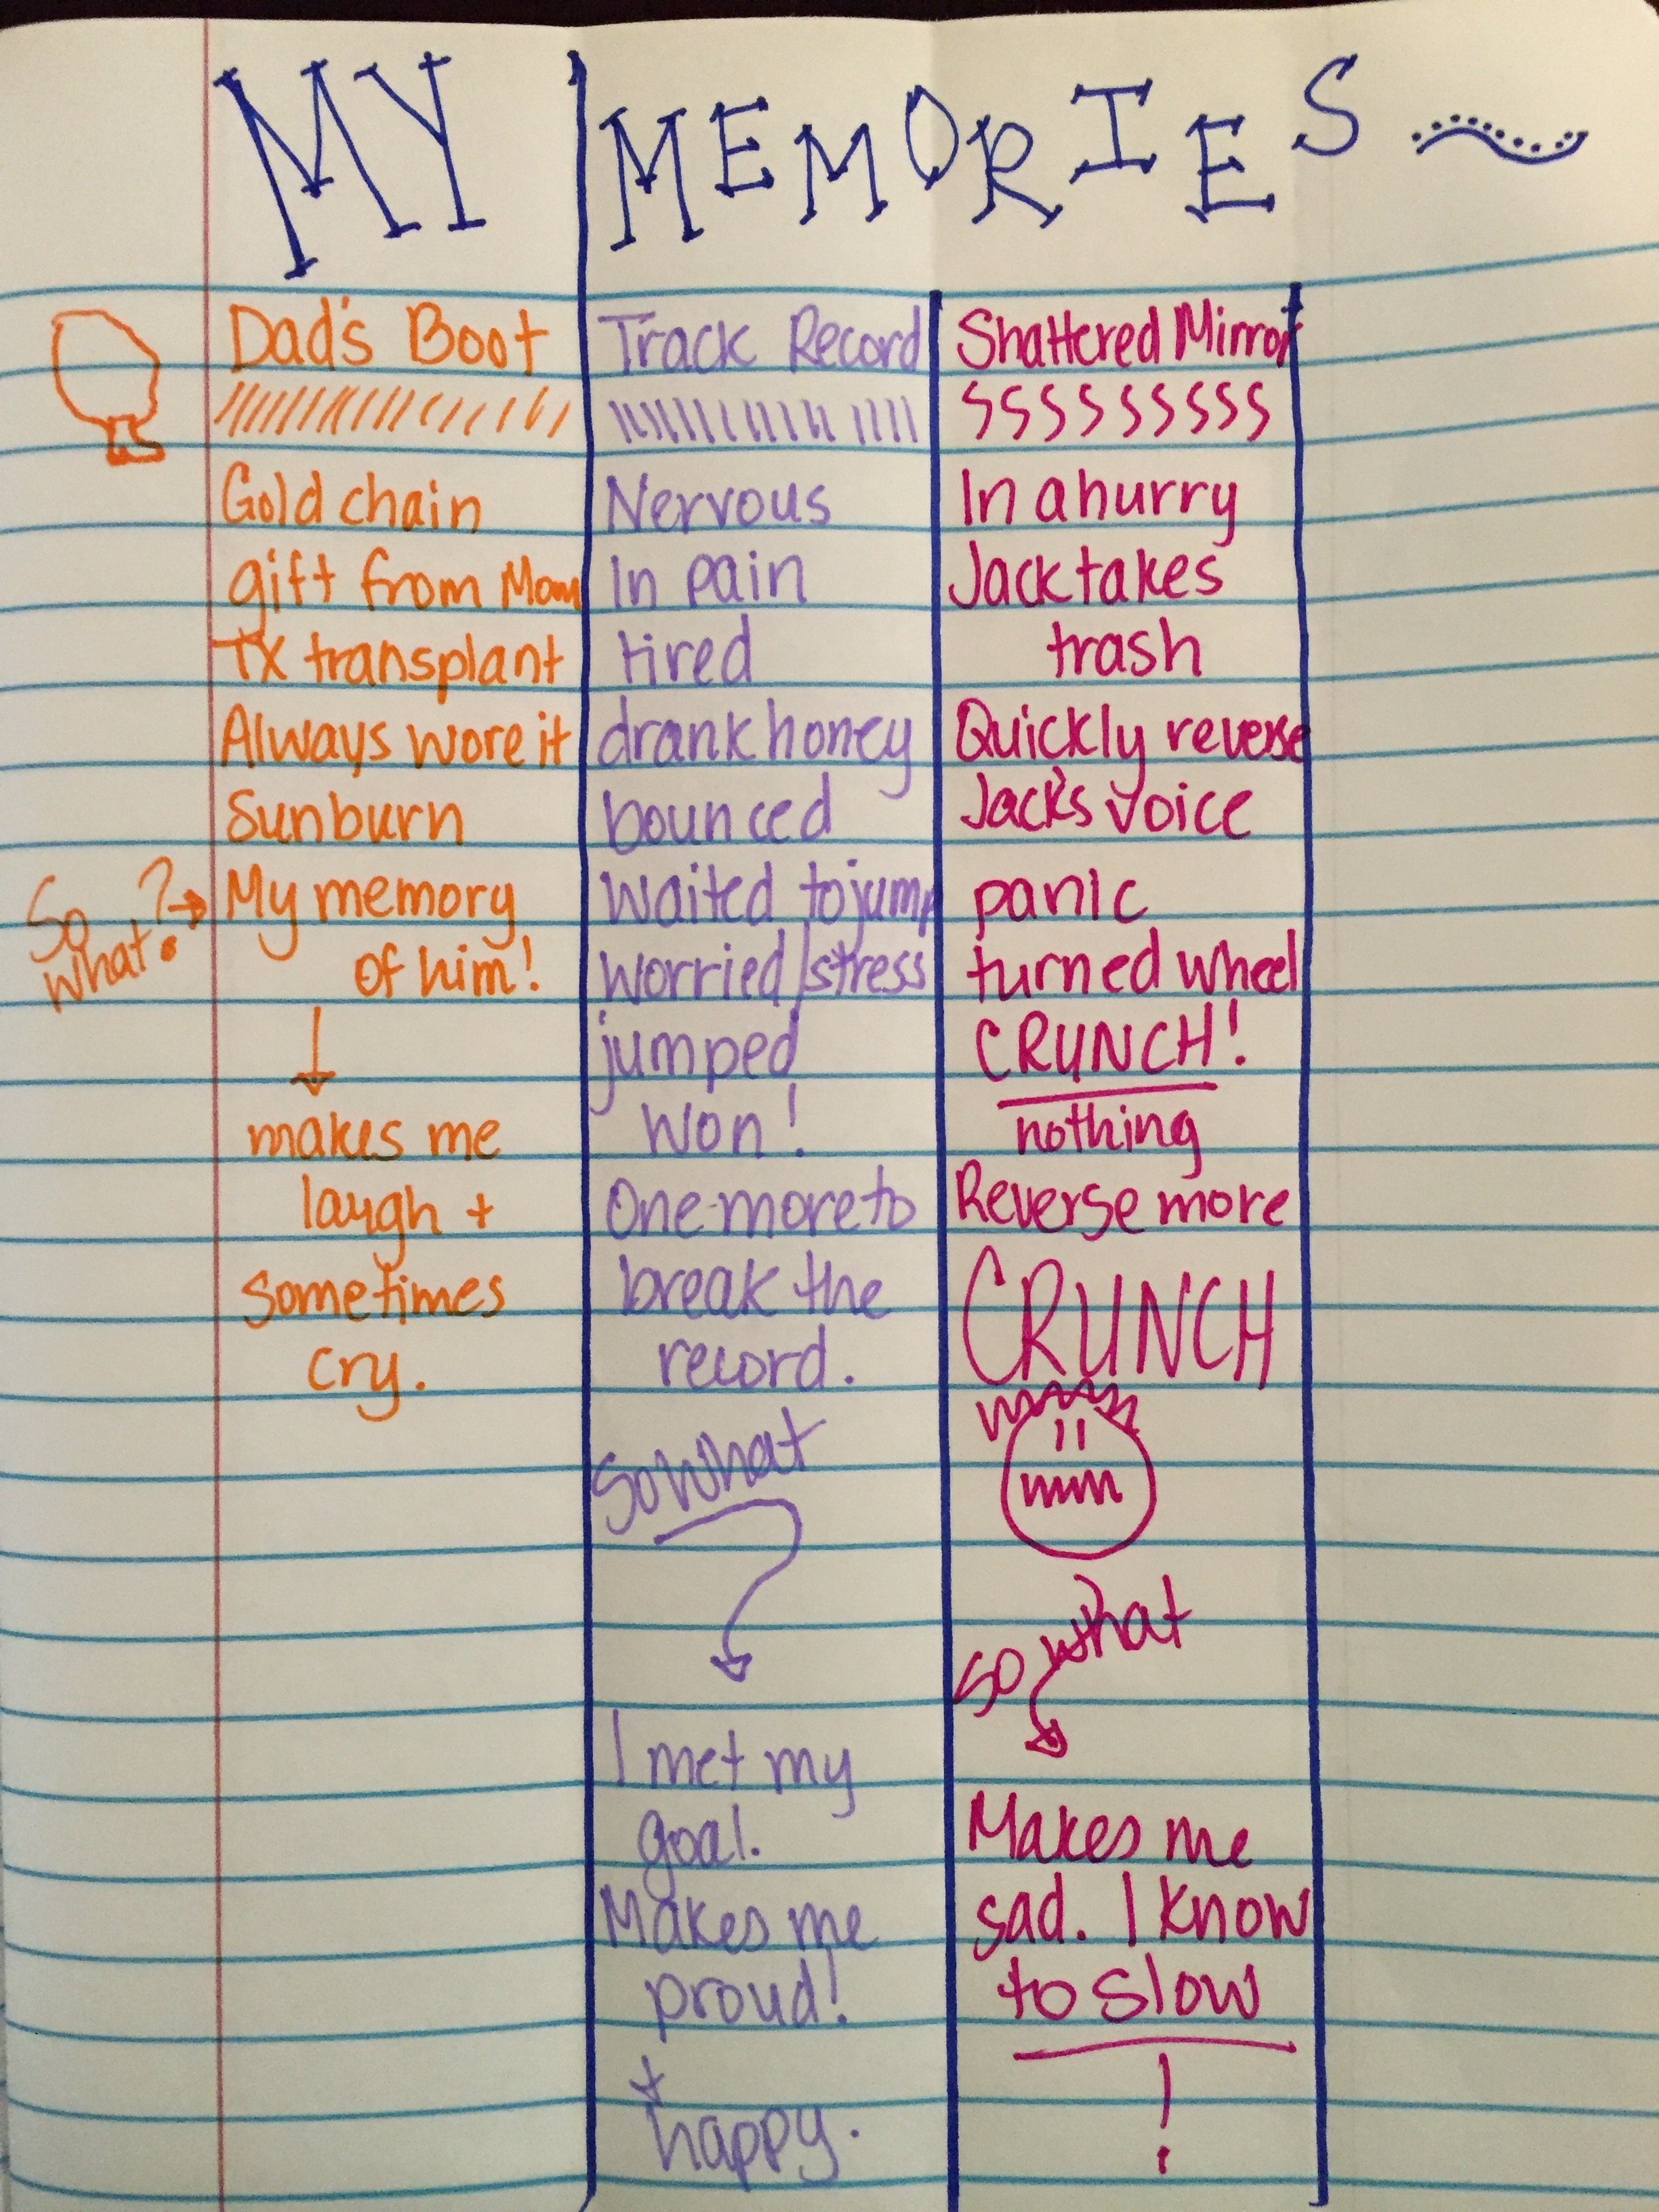 MY MEMORIES
Dad's Boot
Gold chain
gift from Mom
TX transplant
Always wore it
Sunburn
So what?
My memory
of him!
makes me
laugh +
sometimes
cry.
Track Record
Nervous
In pain
tired
drank honey
bounced
Waited to jump
worried/stress
jumped
won!
One more to
break the
record.
So what
I met my
goal.
Makes me
proud!
+
happy.
Shattered Mirror
In a hurry
Jack takes
trash
Quickly reverse
Jack's voice
panic
turned wheel
CRUNCH!
nothing
Reverse more
CRUNCH
so what
Makes me
sad. I know
to slow
!